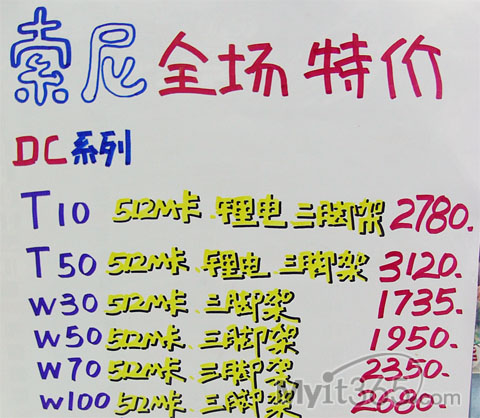 索尼全场特价
DC系列
T10 512M卡.锂电.三脚架 2780.
T50 512M卡.锂电.三脚架 3120.
W30 512M卡.三脚架 1735.
W50 512M卡.三脚架 1950.
W70 512M卡.三脚架 2350.
W100 512M卡.三脚架 2680.
Myit365.com